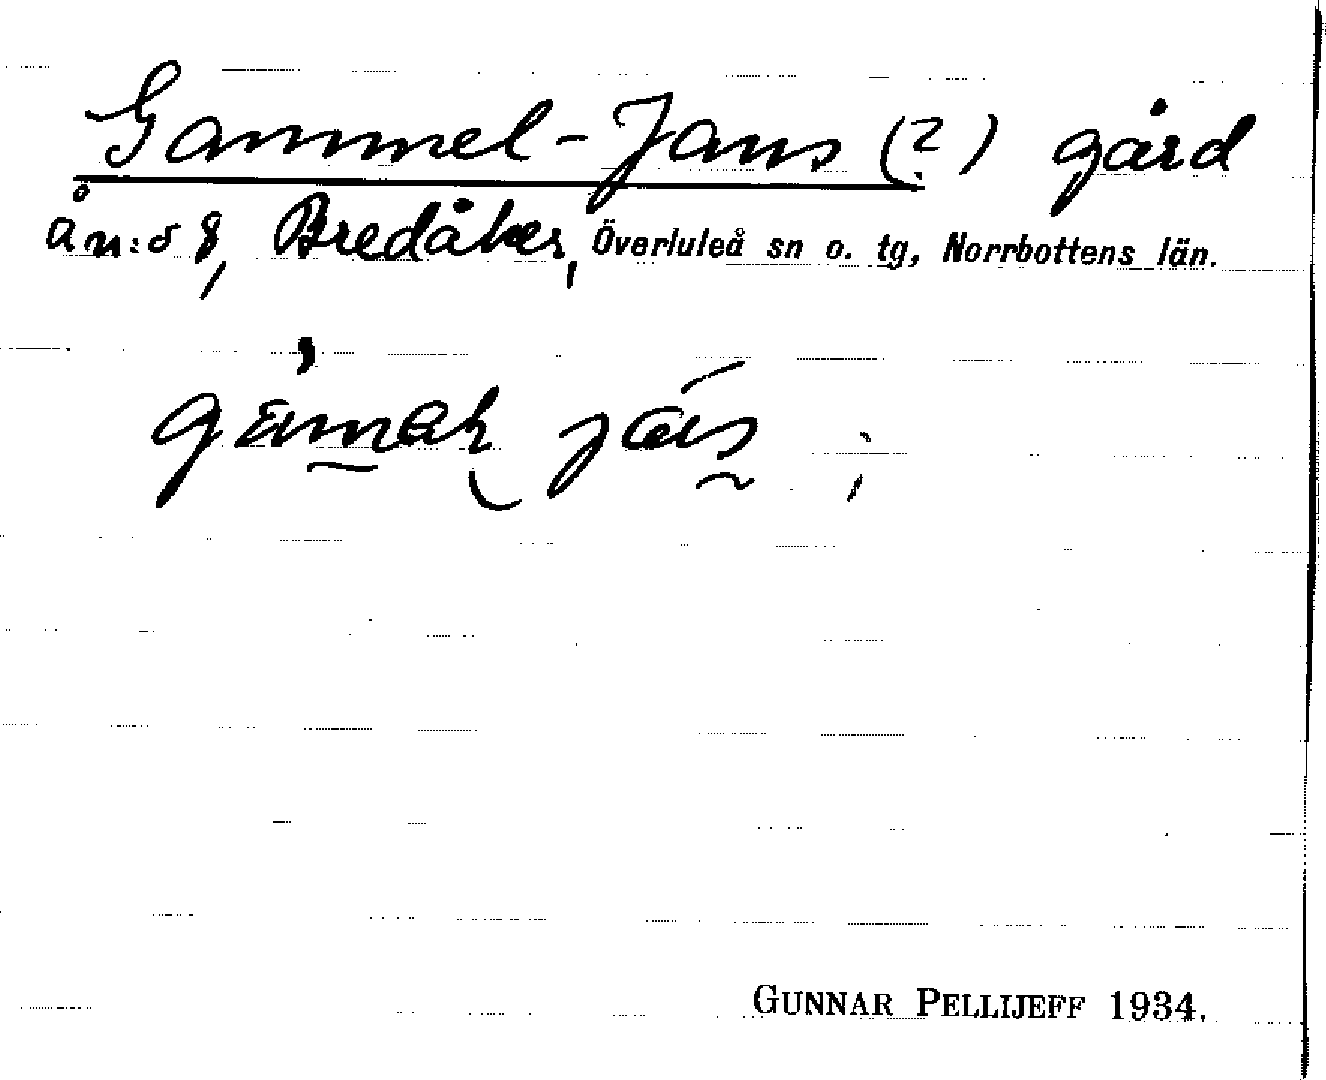 Gammel-Jans (?) gård
å n:o 8, Bredåker, Överluleå sn o. tg, Norrbottens län.
GUNNAR PELLIJEFF 1934.